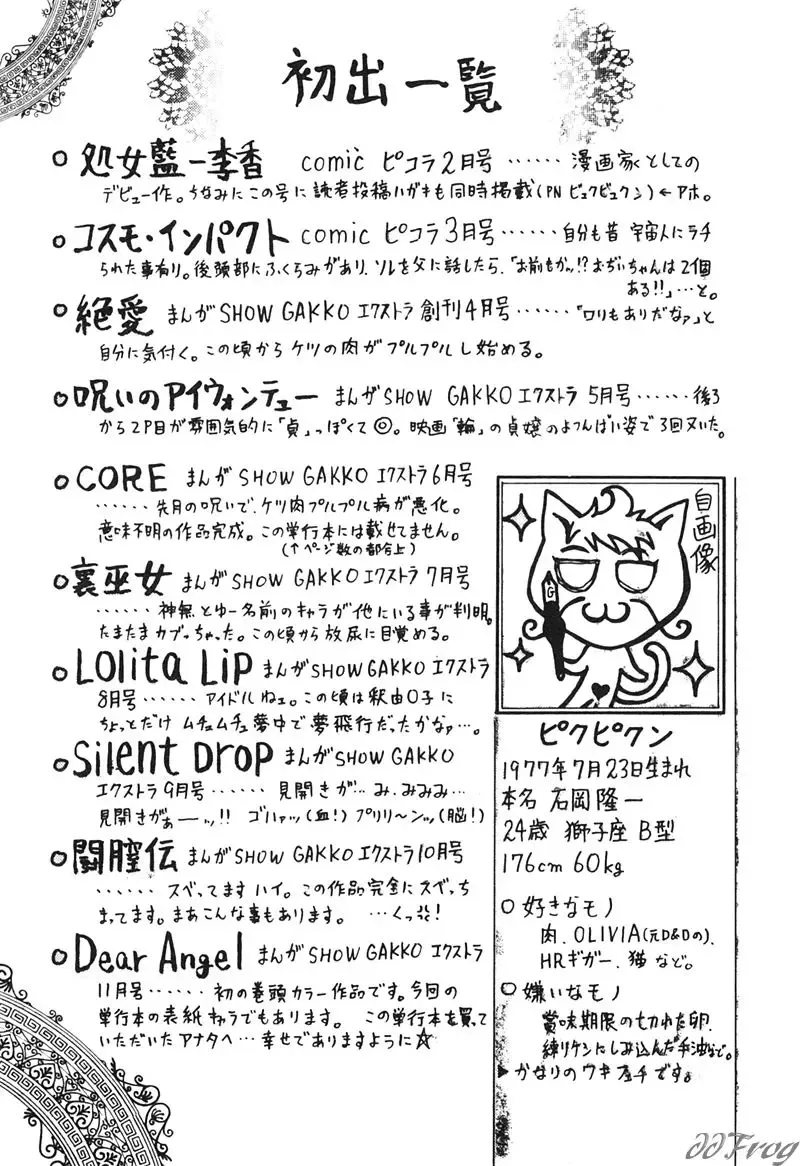 初出一覧
○処女藍－李香 comic ピコラ2月号……漫画家としての
デビュー作。ちなみにこの号に読者投稿ハガキも同時掲載(PN ピュクピュクン)←アホ。
○コスモ・インパクト comic ピコラ3月号……自分も昔 宇宙人にラチ
られた事有り。後頭部にふくらみがあり、ソレを父に話したら、「お前もかッ!?おぢいちゃんは2個
ある!!」…と。
○絶愛 まんがSHOW GAKKO エクストラ創刊4月号……「ロリもありだなァ」と
自分に気付く。この頃からケツの肉がプルプルし始める。
○呪いのアイウォンチュー まんがSHOW GAKKO エクストラ 5月号……後3
から2P目が雰囲気的に「貞」っぽくて◎。映画「輪」の貞嬢のよつんばい姿で3回ヌいた。
○CORE まんがSHOW GAKKO エクストラ6月号
……先月の呪いで、ケツ肉プルプル病が悪化。
意味不明の作品完成。この単行本には載せてません。
(↑ページ数の都合上)
○裏巫女 まんがSHOW GAKKO エクストラ 7月号
……神無とゆー名前のキャラが他にいる事が判明。
たまたまカブっちゃった。この頃から放尿に目覚める。
○Lolita Lip まんがSHOW GAKKO エクストラ
8月号……アイドルねェ。この頃は釈由○子に
ちょっとだけ ムチュムチュ夢中で夢飛行だったかなァ…。
○Silent Drop まんがSHOW GAKKO
エクストラ9月号……見開きが…み、みみみ…
見開きがぁーーッ!! ゴハァッ(血!) プリリ〜ンッ(脳!)
○闘膣伝 まんがSHOW GAKKO エクストラ10月号
……スベってます ハイ。この作品完全にスベっち
まってます。まあこんな事もあります。 …くっ!
○Dear Angel まんがSHOW GAKKO エクストラ
11月号……初の巻頭カラー作品です。今回の
単行本の表紙キャラでもあります。 この単行本を買って
いただいたアナタへ…幸せでありますように☆
自画像
G
ピクピクン
1977年7月23日生まれ
本名 石岡隆一
24歳 獅子座 B型
176cm 60kg
○好きなモノ
肉、OLIVIA(元D&Dの)、
HRギガー、猫 など。
○嫌いなモノ
賞味期限の切れた卵、
練りケシにしみ込んだ手油など。
▶かなりのウキ症チです。
JJFrog